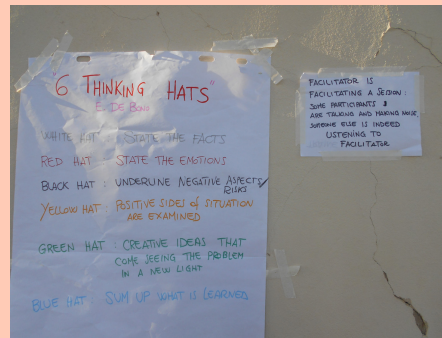 "6 THINKING HATS"
E. DE BONO
WHITE HAT : STATE THE FACTS
RED HAT : STATE THE EMOTIONS
BLACK HAT : UNDERLINE NEGATIVE ASPECTS/
RISKS
YELLOW HAT : POSITIVE SIDES OF SITUATION
ARE EXAMINED
GREEN HAT : CREATIVE IDEAS THAT
COME SEEING THE PROBLEM
IN A NEW LIGHT
BLUE HAT : SUM UP WHAT IS LEARNED
FACILITATOR IS
FACILITATING A SESSION :
SOME PARTICIPANTS
ARE TALKING AND MAKING NOISE,
SOMEONE ELSE IS INDEED
LISTENING TO
FACILITATOR